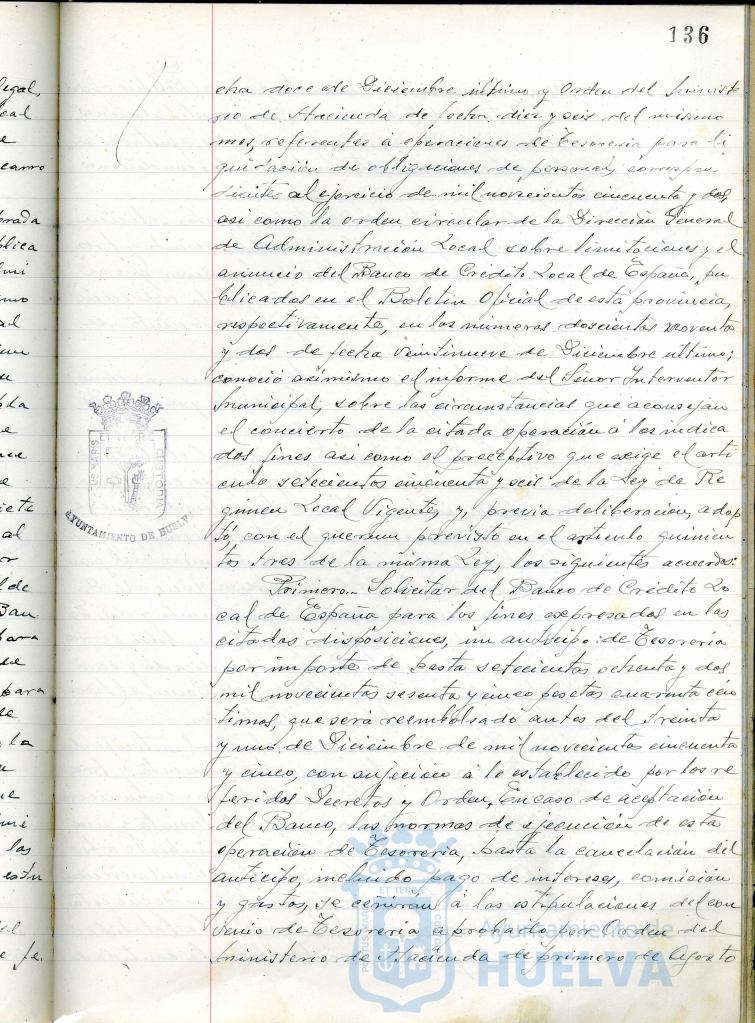 136
cha doce de Diciembre último y Orden del Ministe
rio de Hacienda de fecha diez y seis del mismo
mes, referentes á operaciones de Tesorería para li
quidación de obligaciones de personal, correspon
dientes al ejercicio de mil novecientos cincuenta y dos,
asi como la orden circular de la Dirección General
de Administración Local sobre limitaciones y el
anuncio del Banco de Crédito Local de España, pu
blicados en el Boletín Oficial de esta provincia,
respectivamente, en los números doscientos noventa
y dos de fecha veintinueve de Diciembre último;
conoció asimismo el informe del Señor Interventor
Municipal, sobre las circunstancias que aconsejan
el concierto de la citada operación á los indica
dos fines asi como el preceptivo que exige el artí
culo setecientos cincuenta y seis de la Ley de Ré
gimen Local Vigente, y, previa deliberación, adop
tó, con el quorum previsto en el artículo quinien
tos tres de la misma Ley, los siguientes acuerdos:
Primero.- Solicitar del Banco de Crédito Lo
cal de España para los fines expresados en las
citadas disposiciones, un anticipo de Tesorería
por importe de hasta setecientas ochenta y dos
mil novecientas sesenta y cinco pesetas cuarenta cén
timos, que será reembolsado antes del treinta
y uno de Diciembre de mil novecientos cincuenta
y cinco, con sujeción á lo establecido por los re
feridos Decretos y Orden. En caso de aceptación
del Banco, las normas de ejecución de esta
operación de Tesorería, hasta la cancelación del
anticipo, incluido pago de intereses, comisión
y gastos, se ceñirán á las estipulaciones del con
venio de Tesorería aprobado por Orden del
Ministerio de Hacienda de primero de Agosto
AYUNTAMIENTO DE HUELVA
Ayuntamiento de
HUELVA